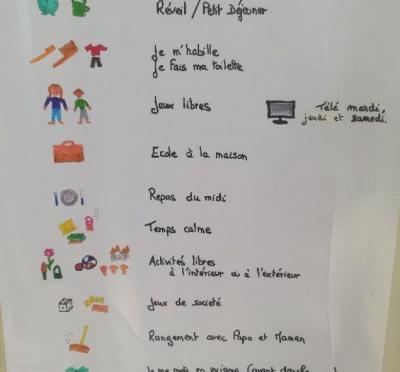 Réveil / Petit Déjeuner
Je m'habille
Je Fais ma toilette
Jeux libres
Télé mardi,
jeudi et samedi.
Ecole à la maison
Repas du midi
Temps calme
Activités libres
à l'intérieur ou à l'extérieur
Jeux de société
Rangement avec Papa et Maman
Je me mets en pyjama (avant douche